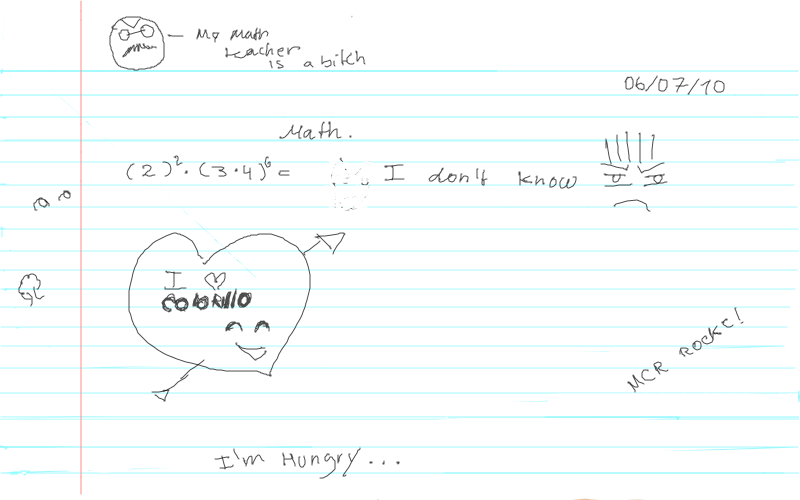 My Math
teacher
is a bitch
06/07/10
Math.
(2)². (3.4)⁶ = I don't know
I ♡
COLORILLO
MCR ROCKC!
I'm Hungry...